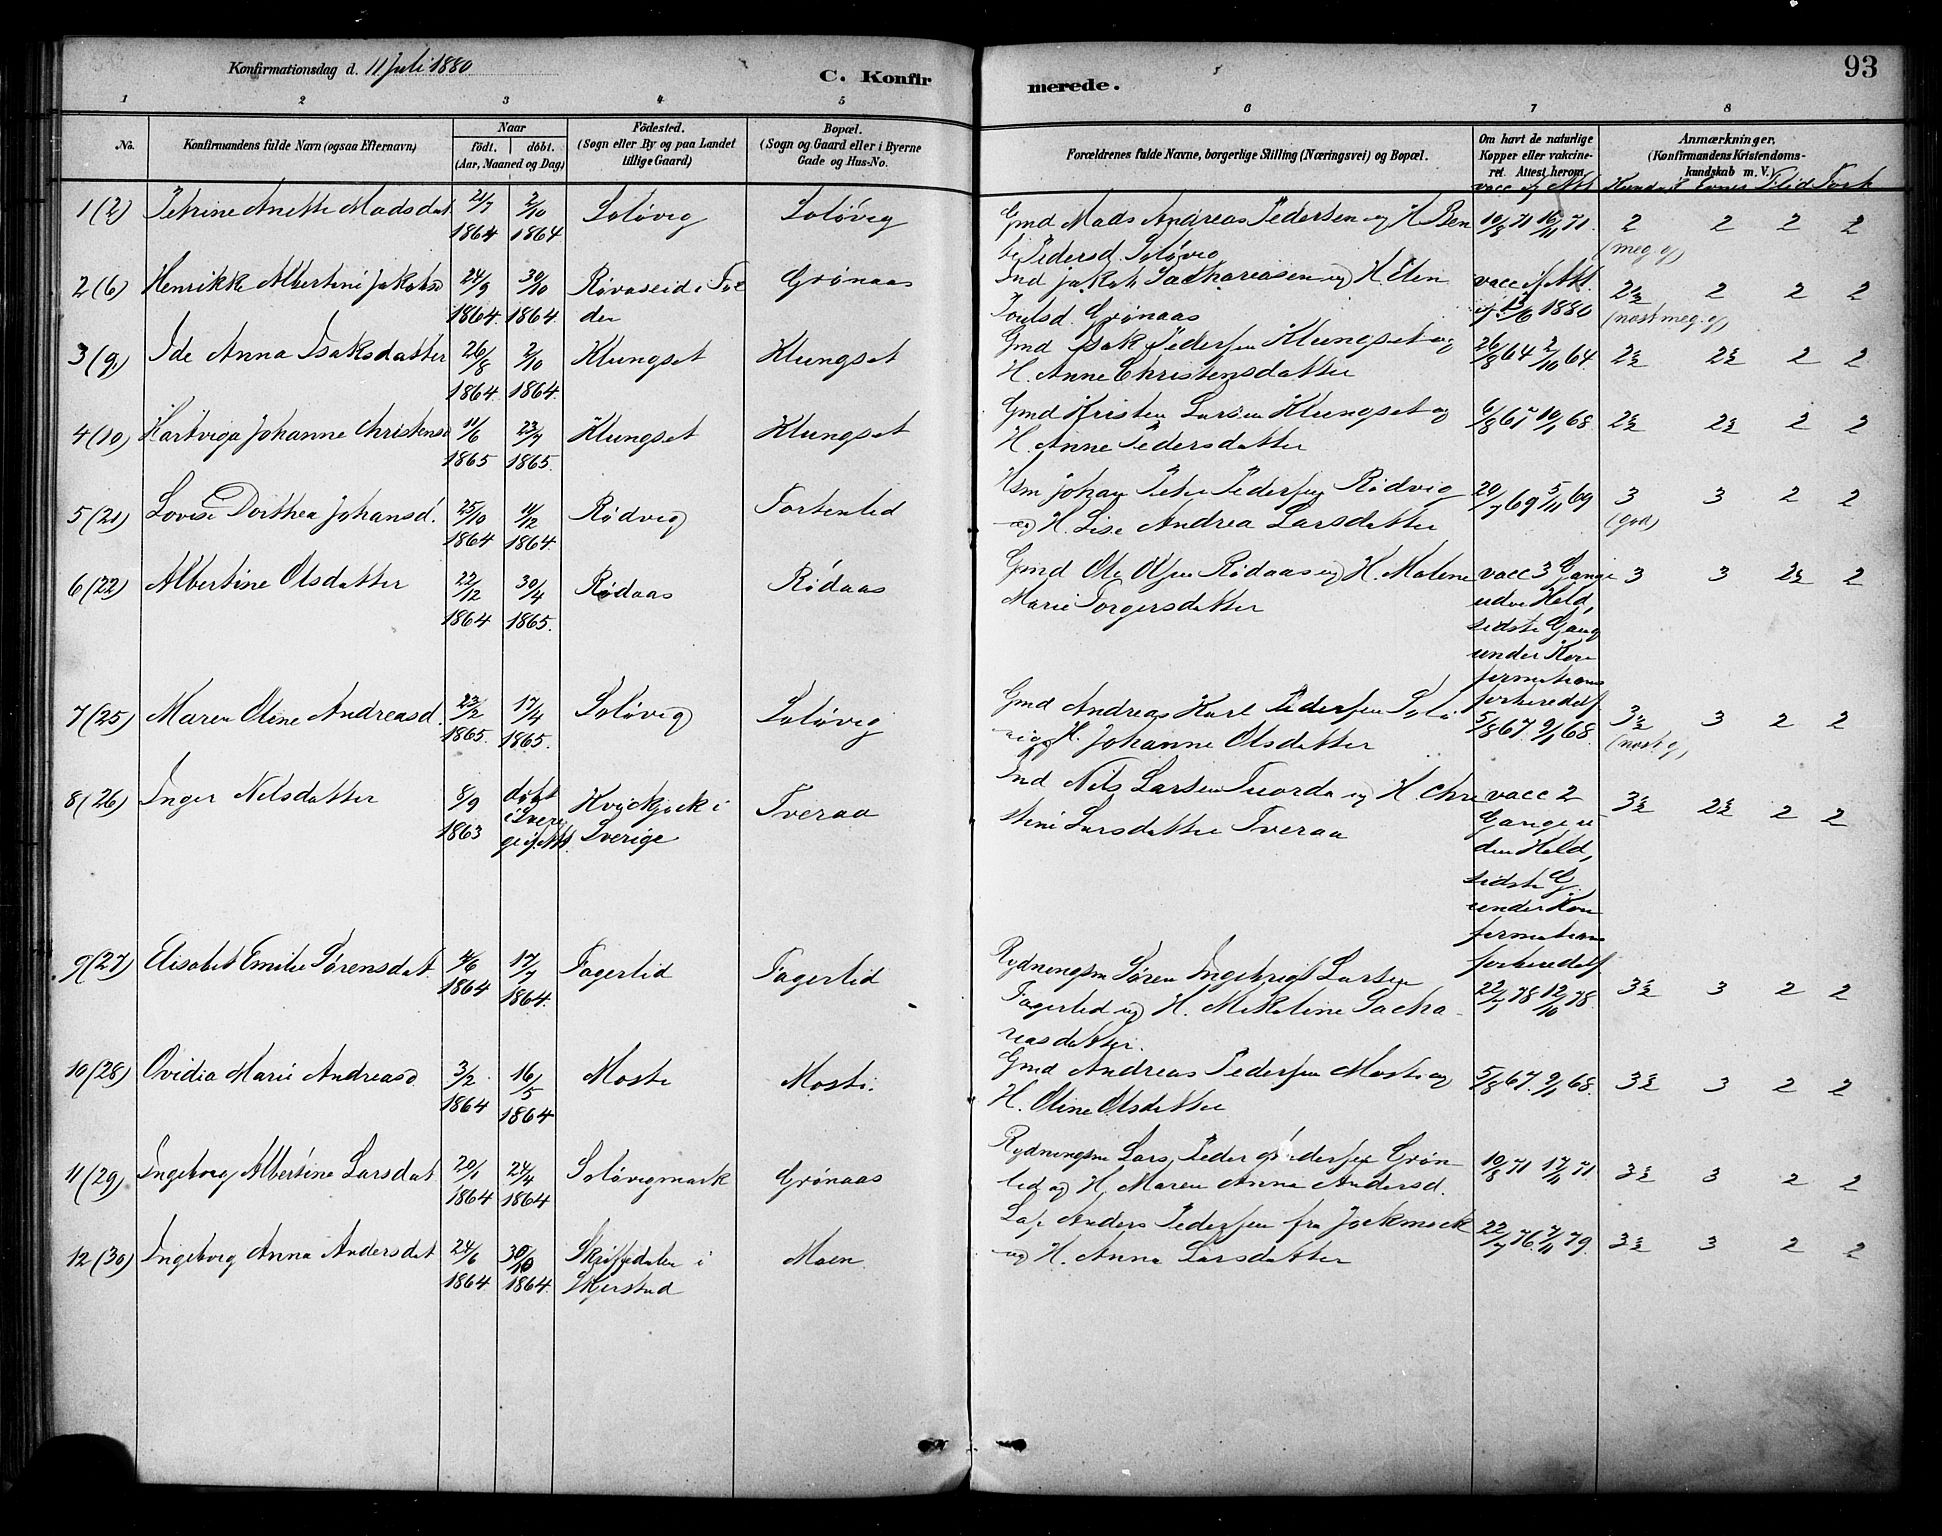 93
Konfirmationsdag d. 11 Juli 1880
C. Konfir merede.
1 2 3 4 5 6 7 8
No.
Konfirmandens fulde Navn (ogsaa Efternavn)
Naar
födt. döbt.
(Aar, Maaned og Dag)
Födested.
(Sogn eller By og paa Landet
tillige Gaard)
Bopæl.
(Sogn og Gaard eller i Byerne
Gade og Hus-No.
Forældrenes fulde Navne, borgerlige Stilling (Næringsvei) og Bopæl.
Om havt de naturlige
Kopper eller vakcine-
ret. Attest herom.
Anmærkninger.
(Konfirmandens Kristendoms-
kundskab m. V.)
vacc if Att. Kundsk Evner Flid
1(2) Petrine Anette Madsdat 2/10 1864 1864 Soløvig Soløvig Gmd Mads Andreas Pedersen og H. Ben
Pedersd. Soløvig 10/8 71 16/11 71. 2 2 2 2
(meg g)
2(6) Henrikke Albertine Jakobsd 24/9 1864. 30/10 1864. Røvaseid i Fol
den Grønaas Ind Jakob Sachariasen og H. Elen
Grønaas vacc if Att.
if 13/6 1880 2½ 2 2 2
(næst meg g)
3(9) Ide Anna Isaksdatter 26/8 1864 2/10 1864. Klungset Klungset Gmd Isak Pedersen Klungset og
H. Anne Christensdatter 26/8 64 2/10 64. 2½ 2½ 2 2
4(10) Hartviga Johanne Christensd 11/6 1865 23/7 1865. Klungset Klungset Gmd Kristen Larsen Klungset og
H. Anne Pedersdatter 6/8 67 10/1 68. 2½ 2½ 2 2
5(21) Lovise Dorthea Johansd. 25/10 1864 11/12 1864. Rødvig Fortenlid Hsm Johan Peter Pedersen Rødvig
og H. Lise Andrea Larsdatter 20/7 69 5/11 69 3 3 2 2
(god)
6(22) Albertine Olsdatter 22/12 1864 30/4 1865. Rødaas Rødaas Gmd Ole Olsen Rødaas og H. Malene
Marie Torgersdatter vacc 3 Gange
uden Held,
sidste Gang
under Kon
firmations
forberedels 3 3 2½ 2
7(25) Maren Oline Andreasd. 22/2 1865. 17/4 1865. Soløvig Soløvig Gmd Andreas Karl Pedersen Solø
vig og H. Johanne Olsdatter 5/8 67. 9/1 68. 3½ 3 2 2
(næst g)
8(26) Inger Nilsdatter 8/9 1863 døbt
i Sveri
ge if. Att. Kvickjock i
Sverige Tveraa Ind Nils Larsen Tuorda og H. Chri
stine Larsdatter Tveraa vacc 2
Gange u
den Held,
sidste G.
under Kon
firmations
forberedels 3½ 2½ 2 2
9(27) Elisabet Emilie Sørensdat 4/6 1864 17/7 1864. Fagerlid Fagerlid Rydningsm Søren Ingebrigt Larsen
Fagerlid og H. Mekeline Sacha
reasdatter. 22/7 78 12/10 78. 3½ 3 2 2
10(28) Ovidia Marie Andreasd 3/2 1864 16/5 1864 Moste Moste. Gmd Andreas Pedersen Moste og
H. Oline Olsdatter 5/8 67. 9/1 68. 3½ 3 2 2
11(29) Ingeborg Albertine Larsdat 20/1 1864 24/4 1864 Soløvigmark Grønaas Rydningsm Lars Peder Pedersen Grøn
lid og H. Maren Anna Andersd. 10/8 71 17/11 71 3½ 3 2 2
12(30) Ingeborg Anna Andersdat 24/6 1864 30/10 1864. Skriffedalen i
Skjerstad Moen Lap Anders Pedersen fra Jockmock
og H. Anna Larsdatter 22/7 76. 7/11 79. 3½ 3 2 2